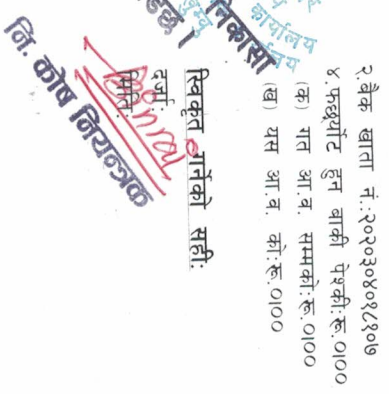 २.बैंक खाता नं.:२०२०३०४०१८१०७
४.फर्छ्यौट हुन बाकी पेश्की:रू.०।००
(क) गत आ.व. सम्मको:रू.०।००
(ख) यस आ.व. को:रू.०।००
निकासा
कार्यालय
स्विकृत गर्नेको सही:
दर्जा:
मिति:
नि. कोष नियन्त्रक